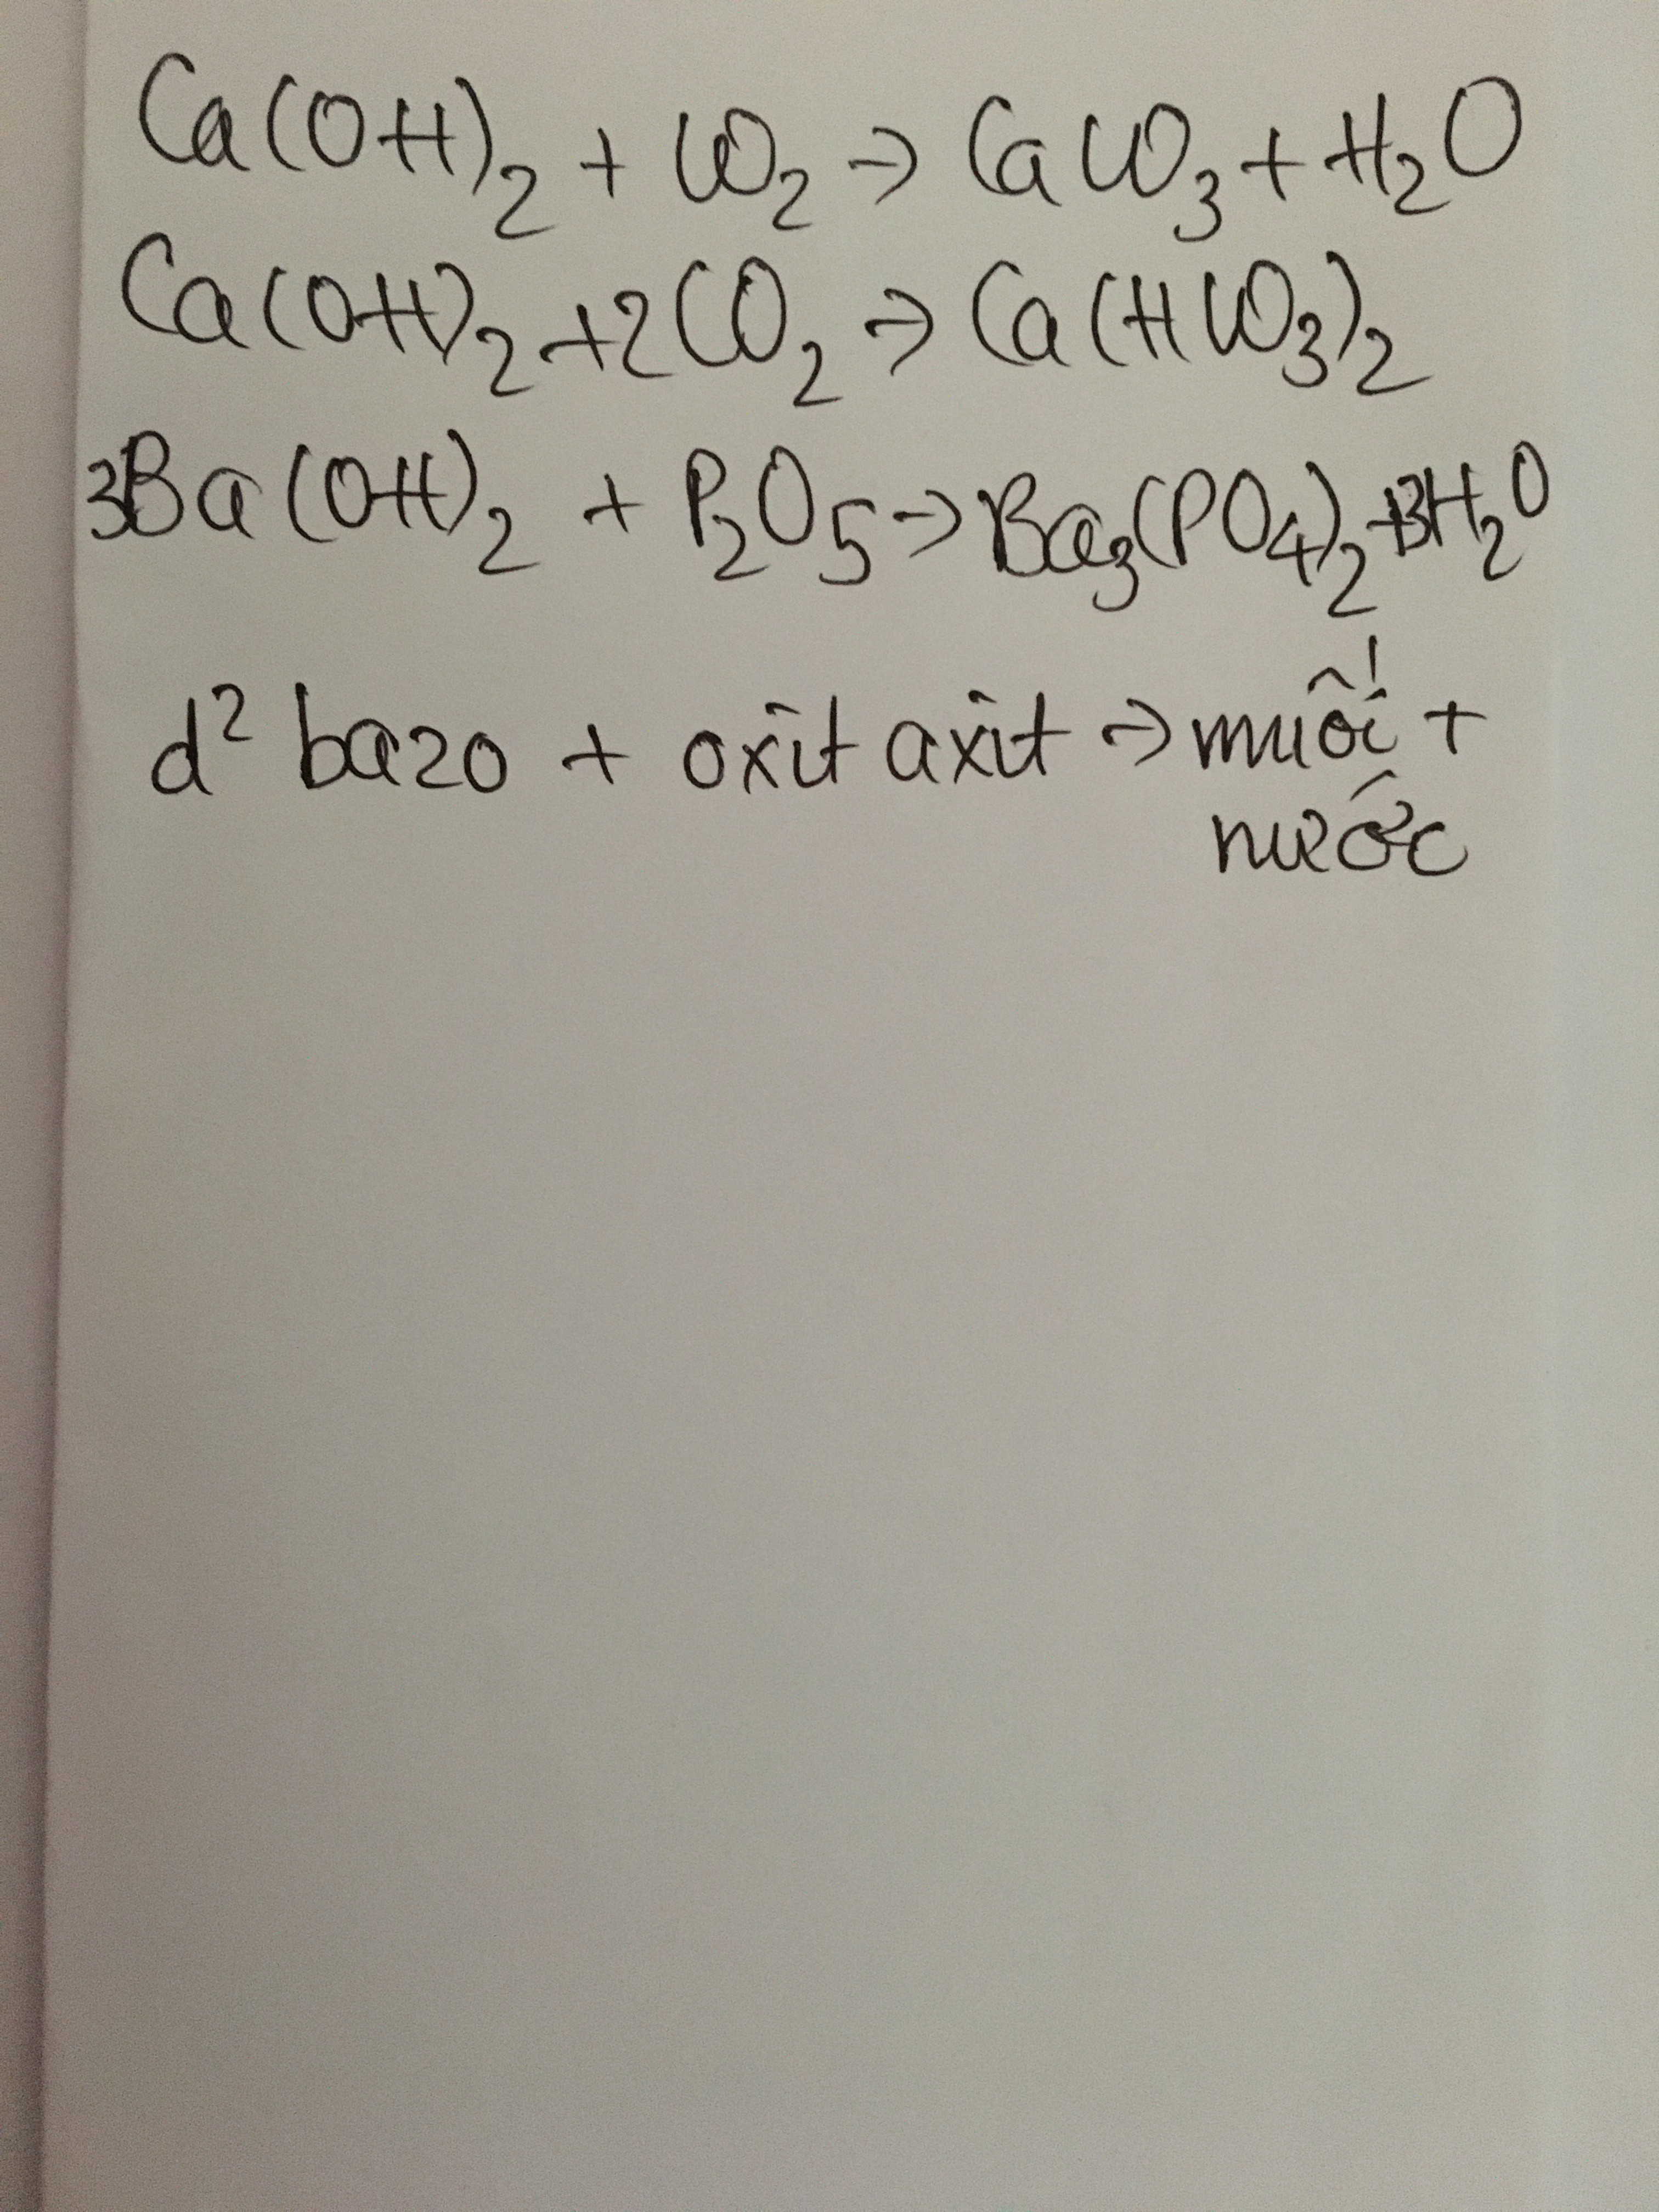 Ca(OH)₂ + CO₂ → CaCO₃ + H₂O
Ca(OH)₂ + 2CO₂ → Ca(HCO₃)₂
3Ba(OH)₂ + P₂O₅ → Ba₃(PO₄)₂ + 3H₂O
d² bazo + oxit axit → muối +
nước